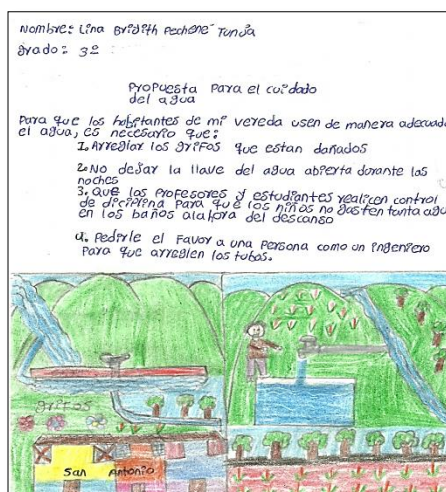 Nombre: Lina Bridith Pechené Tunja
grado: 3º
Propuesta para el cuidado
del agua
Para que los habitantes de mi vereda usen de manera adecuada
el agua, es necesario que:
1. Arreglar los grifos que estan dañados
2. No dejar la llave del agua abierta durante las
noches
3. que los profesores y estudiantes realicen control
de diciplina para que los niños no gasten tanta agua
en los baños ala hora del descanso
4. Pedirle el favor a una persona como un ingeniero
para que arreglen los tubos.
grifos
San Antonio